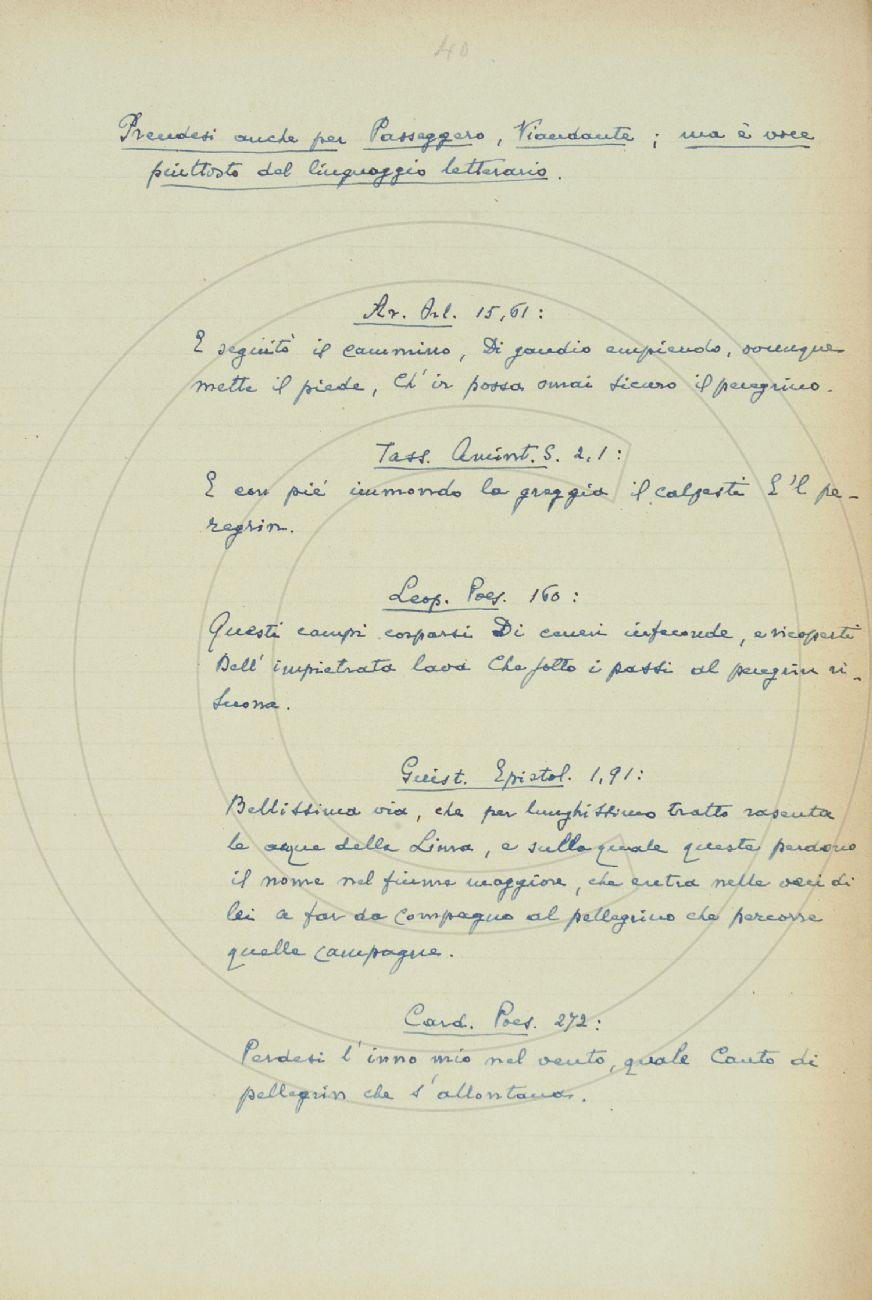 40
Prendesi anche per Passeggero, Viandante; ma è voce
piuttosto del linguaggio letterario.
Ar. Orl. 15,61:
E seguitò il cammino, Di gaudio empiendo, ovunque
mette il piede, Ch'ir possa omai sicuro il peregrino.
Tass. Amint. S. 2,1:
E con pié immondo la greggia il calpesti E'l pe-
regrin.
Leop. Poes. 160:
Questi campi cosparsi Di ceneri infeconde, e ricoperti
Dell'impietrata lava Che sotto i passi al peregrin ri-
suona.
Guist. Epistol. 1,91:
Bellissima via, che per lunghissimo tratto rasenta
le acque della Lima, e sulla quale queste perdono
il nome nel fiume maggiore, che entra nelle veci di
lei a far da compagno al pellegrino che percorre
quelle campagne.
Card. Poes. 272:
Perdesi l'inno mio nel vento, quale Canto di
pellegrin che s'allontana.